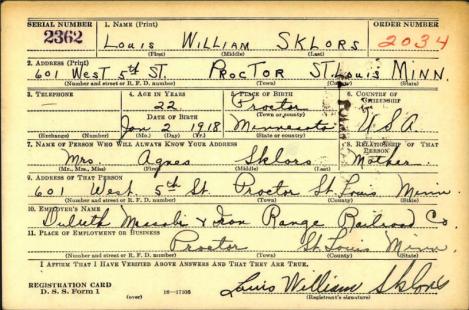 SERIAL NUMBER 1. NAME (Print) ORDER NUMBER
2362 LOUIS WILLIAM SKLORS 2034
(First) (Middle) (Last)
2. ADDRESS (Print)
601 WEST 5th ST. PROCTOR ST. LOUIS MINN.
(Number and street or R. F. D. number) (Town) (County) (State)
3. TELEPHONE 4. AGE IN YEARS 5. PLACE OF BIRTH 6. COUNTRY OF CITIZENSHIP
22 Proctor
DATE OF BIRTH (Town or county)
Jan 2 1918 Minnesota U S A
(Exchange) (Number) (Mo.) (Day) (Yr.) (State or country)
7. NAME OF PERSON WHO WILL ALWAYS KNOW YOUR ADDRESS 8. RELATIONSHIP OF THAT PERSON
Mrs. Agnes Sklors Mother
(Mr., Mrs., Miss) (First) (Middle) (Last)
9. ADDRESS OF THAT PERSON
601 West 5th St Proctor St. Louis Minn
(Number and street or R. F. D. number) (Town) (County) (State)
10. EMPLOYER'S NAME
Duluth Missabi & Iron Range Railroad Co.
11. PLACE OF EMPLOYMENT OR BUSINESS
Proctor St. Louis Minn
(Number and street or R. F. D. number) (Town) (County) (State)
I AFFIRM THAT I HAVE VERIFIED ABOVE ANSWERS AND THAT THEY ARE TRUE.
REGISTRATION CARD
D. S. S. Form 1 (over) 16—17105 Louis William Sklors
(Registrant's signature)